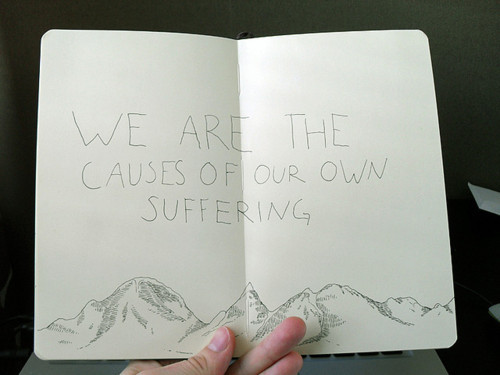 WE ARE THE
CAUSES OF OUR OWN
SUFFERING